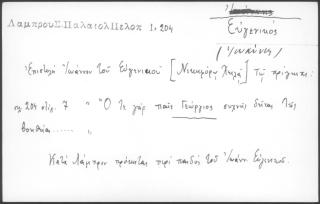 Ἰωάννης
Λαμπρου Σ. Παλαιολ Πελοπ 1. 204
Εὐγενικὸς
(Ἰωάννης)
Ἐπιστολὴ Ἰωάννου τοῦ Εὐγενικοῦ [Νικηφόρῳ τῷ πρίγκιπι:
σελ. 204 στίχ. 7 " Ὁ τε γὰρ παῖς Γεώργιος συχνῆς δεῖται τῆς
βοηθείας...... "
Κατὰ Λάμπρον πρόκειται περὶ παιδὸς τοῦ Ἰωάνν. Εὐγενικοῦ.